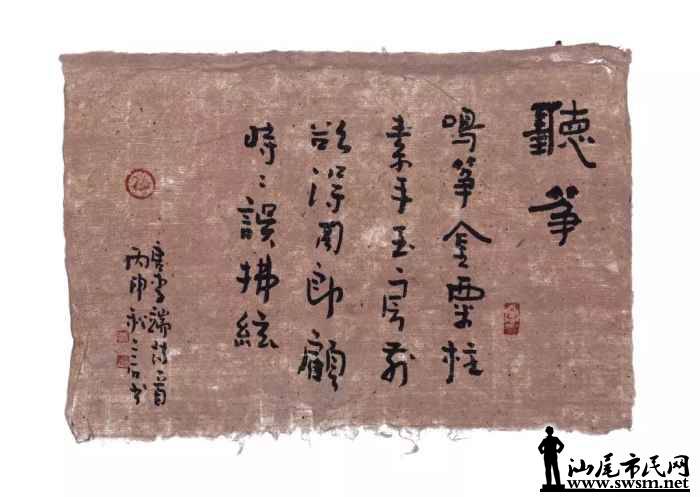 聽筝
鳴筝金粟柱
素手玉房前
欲得周郎顧
時〻誤拂絃
唐李端詩一首
丙申秋三石书
汕尾市民网
www.swsm.net